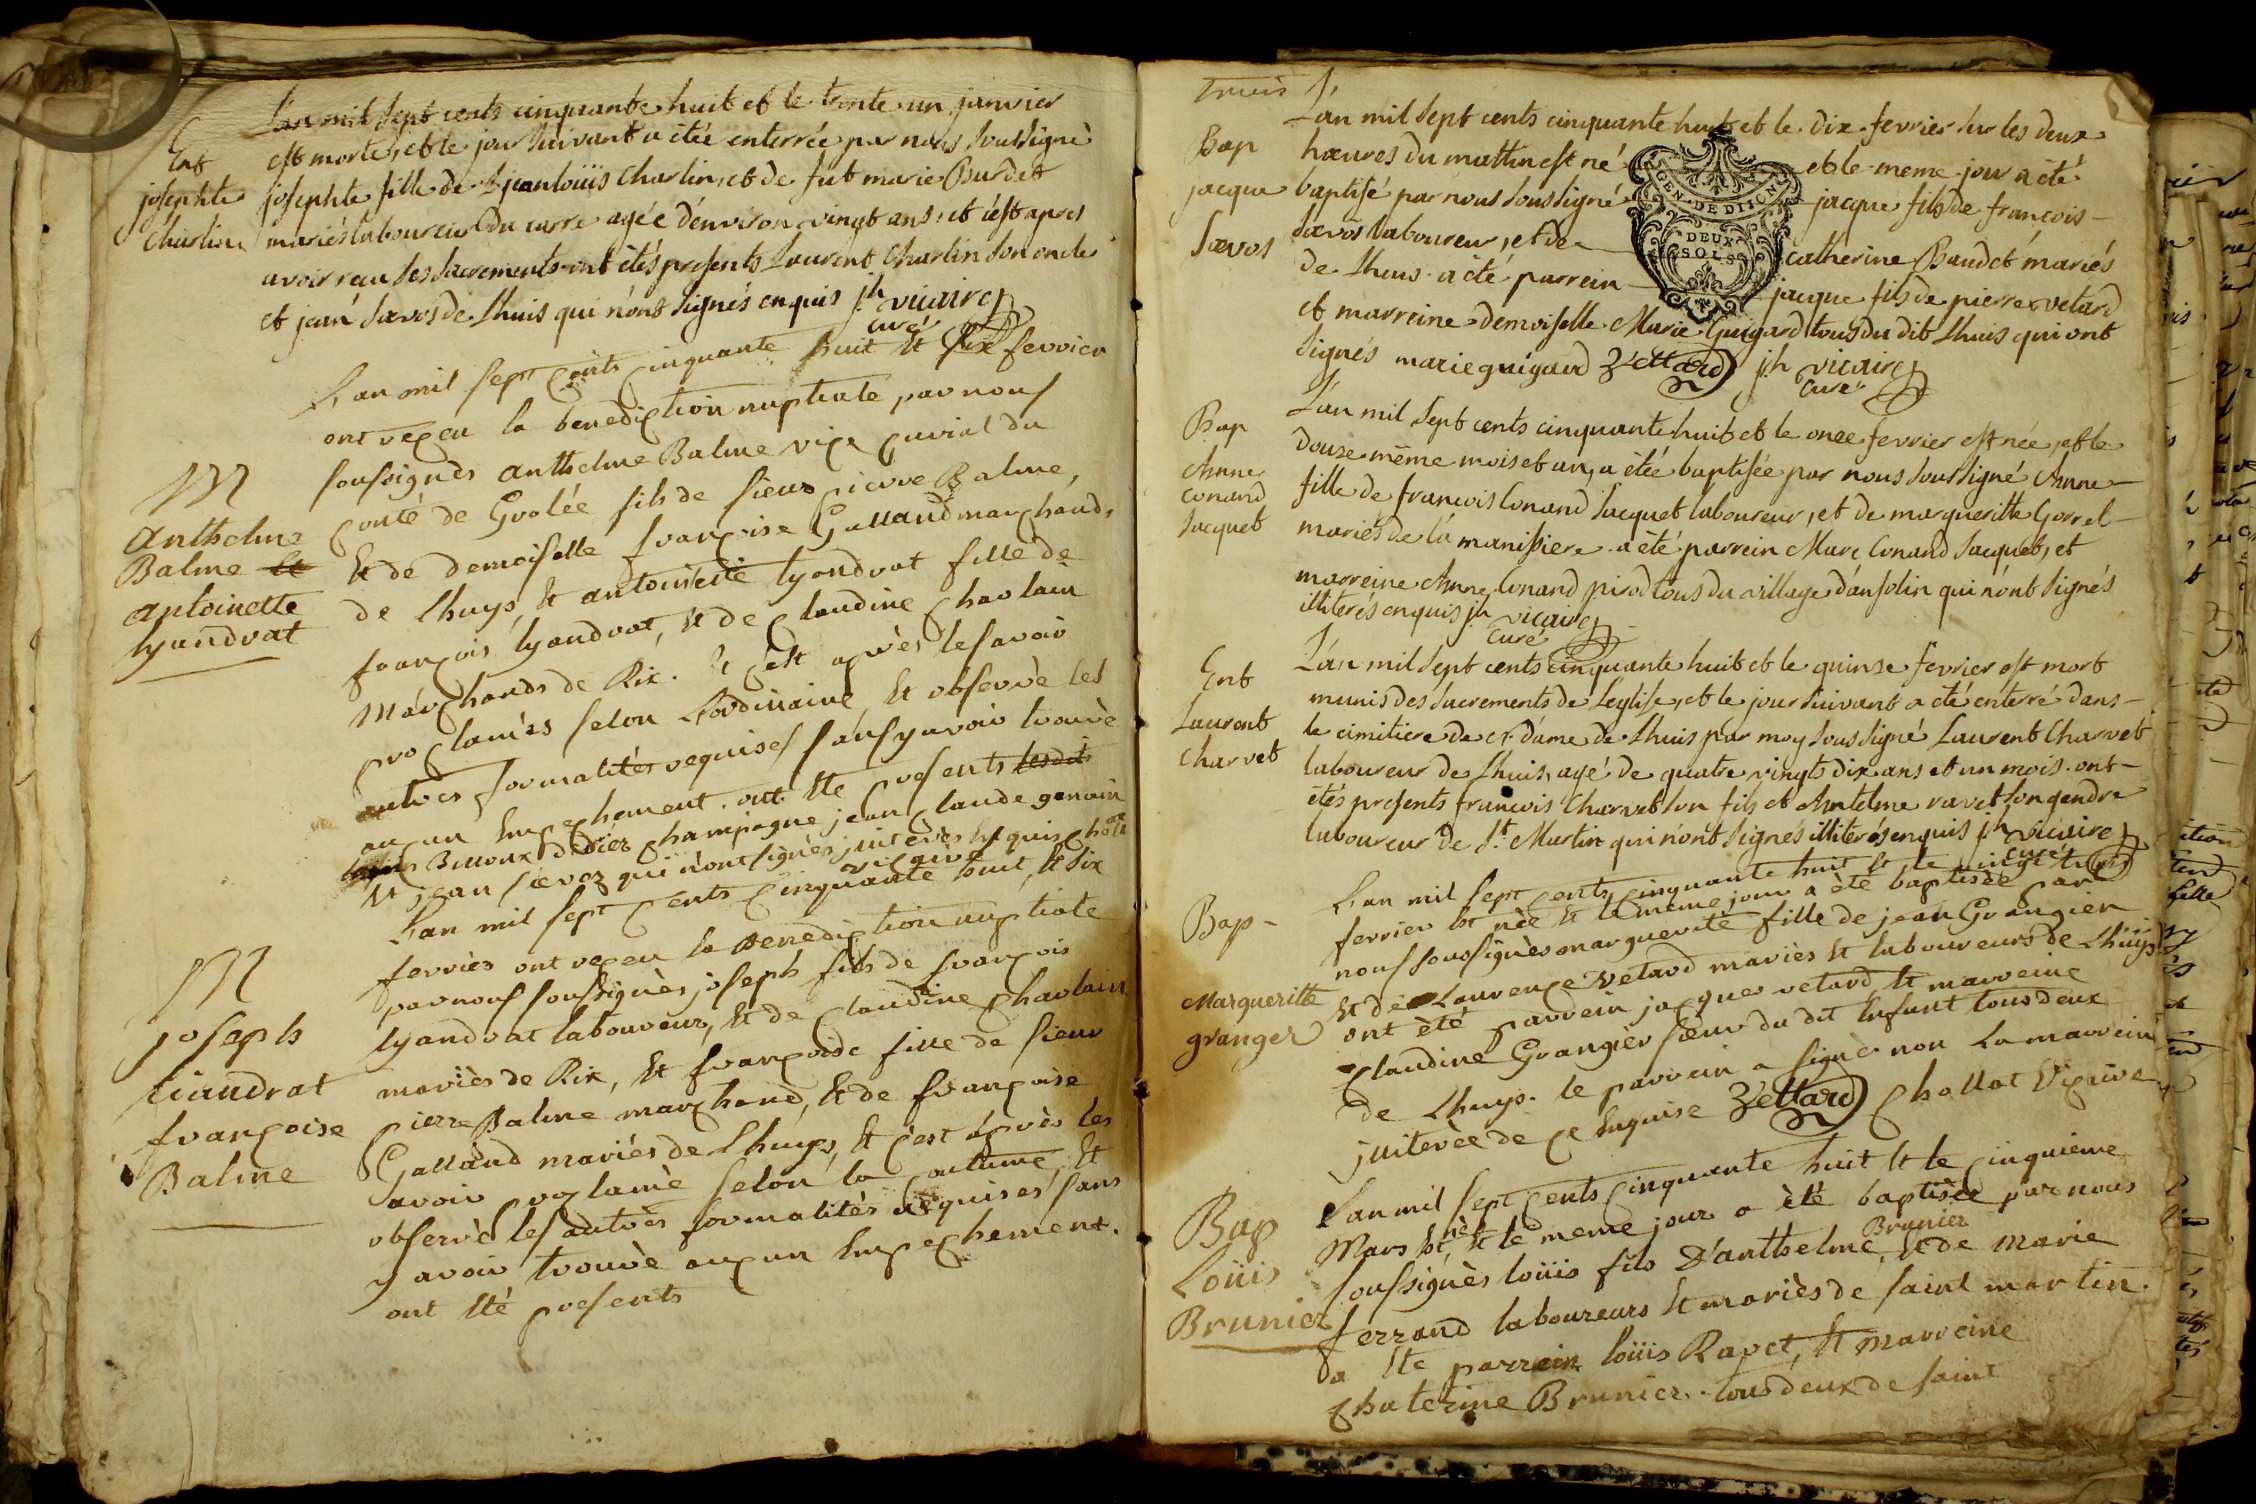 L'an mil sept cents cinquante huit et le trente un janvier
Ent
est morte, et le jour suivant a étée enterrée par nous soussigné
josephte
josephte fille de jean loüis Charlin, et de fut marie Burdet
Charlin
mariés laboureur du carre agée d'environ vingt ans, et c'est apres
avoir reçu les sacrements ont étés presents Laurent Charlin son oncle
et jean Sævos de Lhuis qui n'ont signés enquis jh vicaire
curé
L'an mil sept cents cinquante huit et six fevrier
ont reçeu la benediction nuptiale par nous
soussignés anthelme Balme vice curial du
M
anthelme
Balme et
antoinette
lyandrat
conté de Grolée fils de sieur pierre Balme,
Et de demoiselle françoise Galland marchands
de Lhuys, Et antoinette lyandrat fille de
françois lyandrat, Et de claudine charlain
marchands de Rix. Et c'est après les avoir
proclamés selon L'ordinaire, Et observè les
autres formalités requises sans y avoir trouvè
aucun Empechement. ont Eté presents lesdits
Billoux didier champagne jean claude genain
Et jean sævoz qui n'ont signès, juiterés Enquis
L'an mil sept cents cinquante huit, Et six
fevrier ont reçeu la benediction nuptiale
M
joseph
liandrat
françoise
Balme
par nous soussignès joseph fils de françois
lyandrat laboureur, Et de claudine charlain
mariès de Rix, Et françoise fille de sieur
pierre Balme marchand, Et de françoise
Galland mariés de Lhuys, Et c'est après les
avoir proclamè selon la coutume, Et
observè les autres formalités requises sans
y avoir trouvè aucun Empechement.
ont Eté presents
trois
L'an mil sept cents cinquante huit et le dix fevrier sur les deux
Bap
jacque
Sævos
hœures du mattin est né et le meme jour a été
baptisé par nous soussigné jacque fils de françois
Sævos laboureur, et de catherine Baudet mariés
de Lhuis a été parrein jacque fils de pierre vetard
et marreine demoiselle Marie Guigard tous du dit Lhuis qui ont
signés marie guigard Zéttard jh vicaire
curé
GEN. DE DIJON
DEUX
SOLS
L'an mil sept cents cinquante huit et le onze fevrier est née, et le
Bap
Anne
Conand
Jacquet
douze même mois et an, a étée baptisée par nous soussigné Anne
fille de francois Conand Jacquet laboureur, et de margueritte Gorrel
mariés de la manissiere a été parrein Marc Conand Jacquet, et
marreine Anne Conand pirod tous du village d'ansolin qui n'ont signés
illiterés enquis jh vicaire
curé
L'an mil sept cents cinquante huit et le quinse fevrier est mort
Ent
Laurent
Charvet
munis des sacrements de l'eglise, et le jour suivant a été enterré dans
le cimitiere de n. dame de Lhuis par moy sous signé Laurent Charvet
laboureur de Lhuis, agé de quatre vingts dix ans et un mois. ont
étés presents francois Charvet son fils et Antelme ravet son gendre
laboureur de St Martin qui n'ont signés illiterés enquis jh vicaire
curé
L'an mil sept cents cinquante huit Et le vingt
Bap
Margueritte
granger
fevrier Est née Et le même jour a été baptisée par
nous soussignès marguerite fille de jean Grangier
Et de Laurence Vetard mariès Et laboureurs de Lhüys
ont èté parrein jacques vetard, Et marreine
claudine Grangier sœur du dit Enfant tous deux
de Lhuys. le parrein a signè non La marreine
juiterèe de ce Enquise Zéttard chollat Vicaire
L'an mil sept cents cinquante huit Et le cinquieme
Bap
Loüis
Brunier
Mars Est né, Et le meme jour a èté baptisée par nous
soussignès loüis fils D'anthelme Brunier, Et de Marie
ferrand laboureurs Et mariès de saint martin.
a Ete parrein loüis Ravet, Et marreine
chaterine Brunier. tous deux de saint